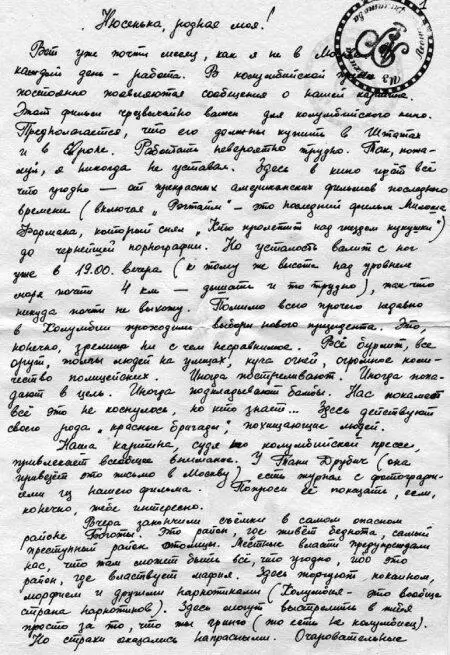 Нюсенька, родная моя!
Вот уже почти месяц, как я не в Москве
каждый день – работа. В колумбийской прессе
постоянно появляются сообщения о нашей картине.
Этот фильм чрезвычайно важен для колумбийского кино.
Предполагается, что его должны купить в Штатах
и в Европе. Работать невероятно трудно. Так, пожа-
луй, я никогда не уставал. Здесь в кино идёт всё
что угодно — от прекрасных американских фильмов последнего
времени (включая „Рэгтайм" – это последний фильм Милоша
Формана, который снял „Кто пролетит над гнездом кукушки")
до чернейшей порнографии. Но усталость валит с ног
уже в 19.00 вечера (к тому же высота над уровнем
моря почти 4 км — дышать и то трудно), так что
никуда почти не выхожу. Помимо всего прочего недавно
в Колумбии проходили выборы нового президента. Это,
конечно, зрелище ни с чем несравнимое. Всё бурлит, все
орут, толпы людей на улицах, куча огней, огромное коли-
чество полицейских. Иногда постреливают. Иногда попа-
дают в цель. Иногда подкладывают бомбы. Нас пока
всё это не коснулось, но кто знает... Здесь действуют
своего рода „красные бригады", похищающие людей.
Наша картина, судя по колумбийской прессе,
привлекает всеобщее внимание. У Тани Друбич (она
привезёт это письмо в Москву) есть журнал с фотографи-
ями из нашего фильма. Попроси её показать, если,
конечно, тебе интересно.
Вчера закончили съёмки в самом опасном
районе Боготы. Это район, где живёт беднота, самый
преступный район столицы. Местные власти предупреждали
нас, что там может быть всё, что угодно, ибо это
район, где властвует мафия. Здесь торгуют кокаином,
морфием и другими наркотиками (Колумбия – это вообще
страна наркотиков). Здесь могут выстрелить в тебя
просто за то, что ты гринго (то есть не колумбиец).
Но страхи оказались напрасными. Очаровательные